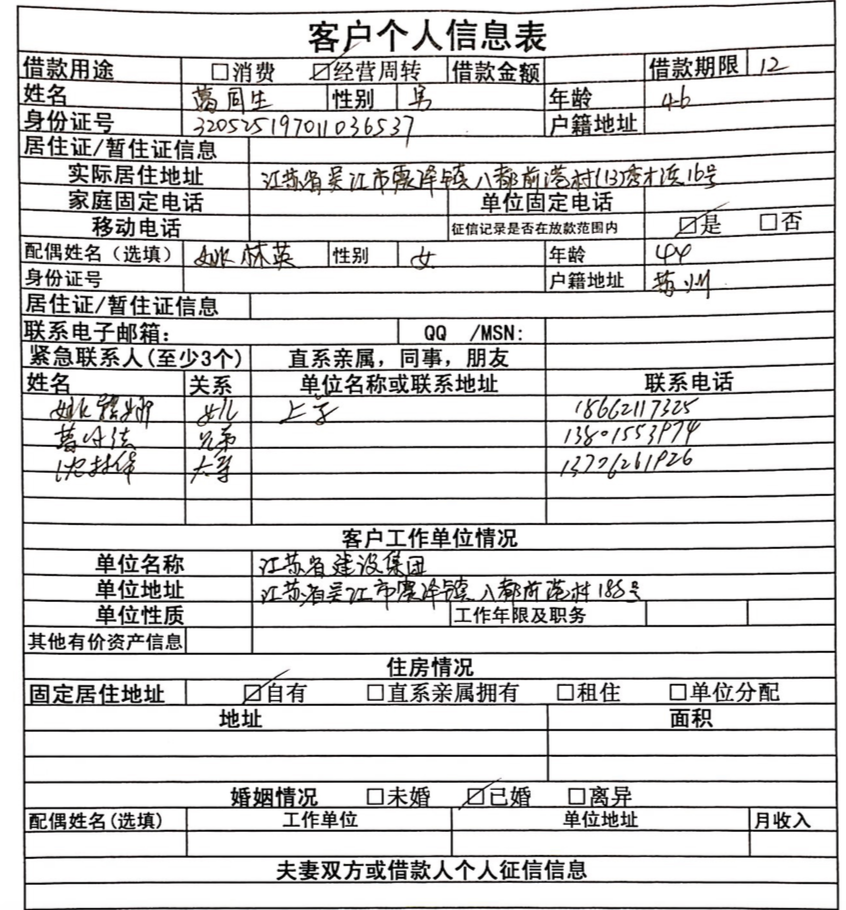 客户个人信息表
借款用途 □消费 ☑经营周转 借款金额 借款期限 12
姓名 葛同生 性别 男 年龄 46
身份证号 320525197011036537 户籍地址
居住证/暂住证信息
实际居住地址 江苏省吴江市震泽镇八都前港村(13)秀才浜16号
家庭固定电话 单位固定电话
移动电话 征信记录是否在放款范围内 ☑是 □否
配偶姓名（选填） 姚林英 性别 女 年龄 44
身份证号 户籍地址 苏州
居住证/暂住证信息
联系电子邮箱： QQ /MSN:
紧急联系人(至少3个) 直系亲属，同事，朋友
姓名 关系 单位名称或联系地址 联系电话
姚 女儿 上学 18662117325
葛 兄弟 13801553974
沈 13706261926
客户工作单位情况
单位名称 江苏省建设集团
单位地址 江苏省吴江市震泽镇八都前港村188号
单位性质 工作年限及职务
其他有价资产信息
住房情况
固定居住地址 ☑自有 □直系亲属拥有 □租住 □单位分配
地址 面积
婚姻情况 □未婚 ☑已婚 □离异
配偶姓名(选填) 工作单位 单位地址 月收入
夫妻双方或借款人个人征信信息